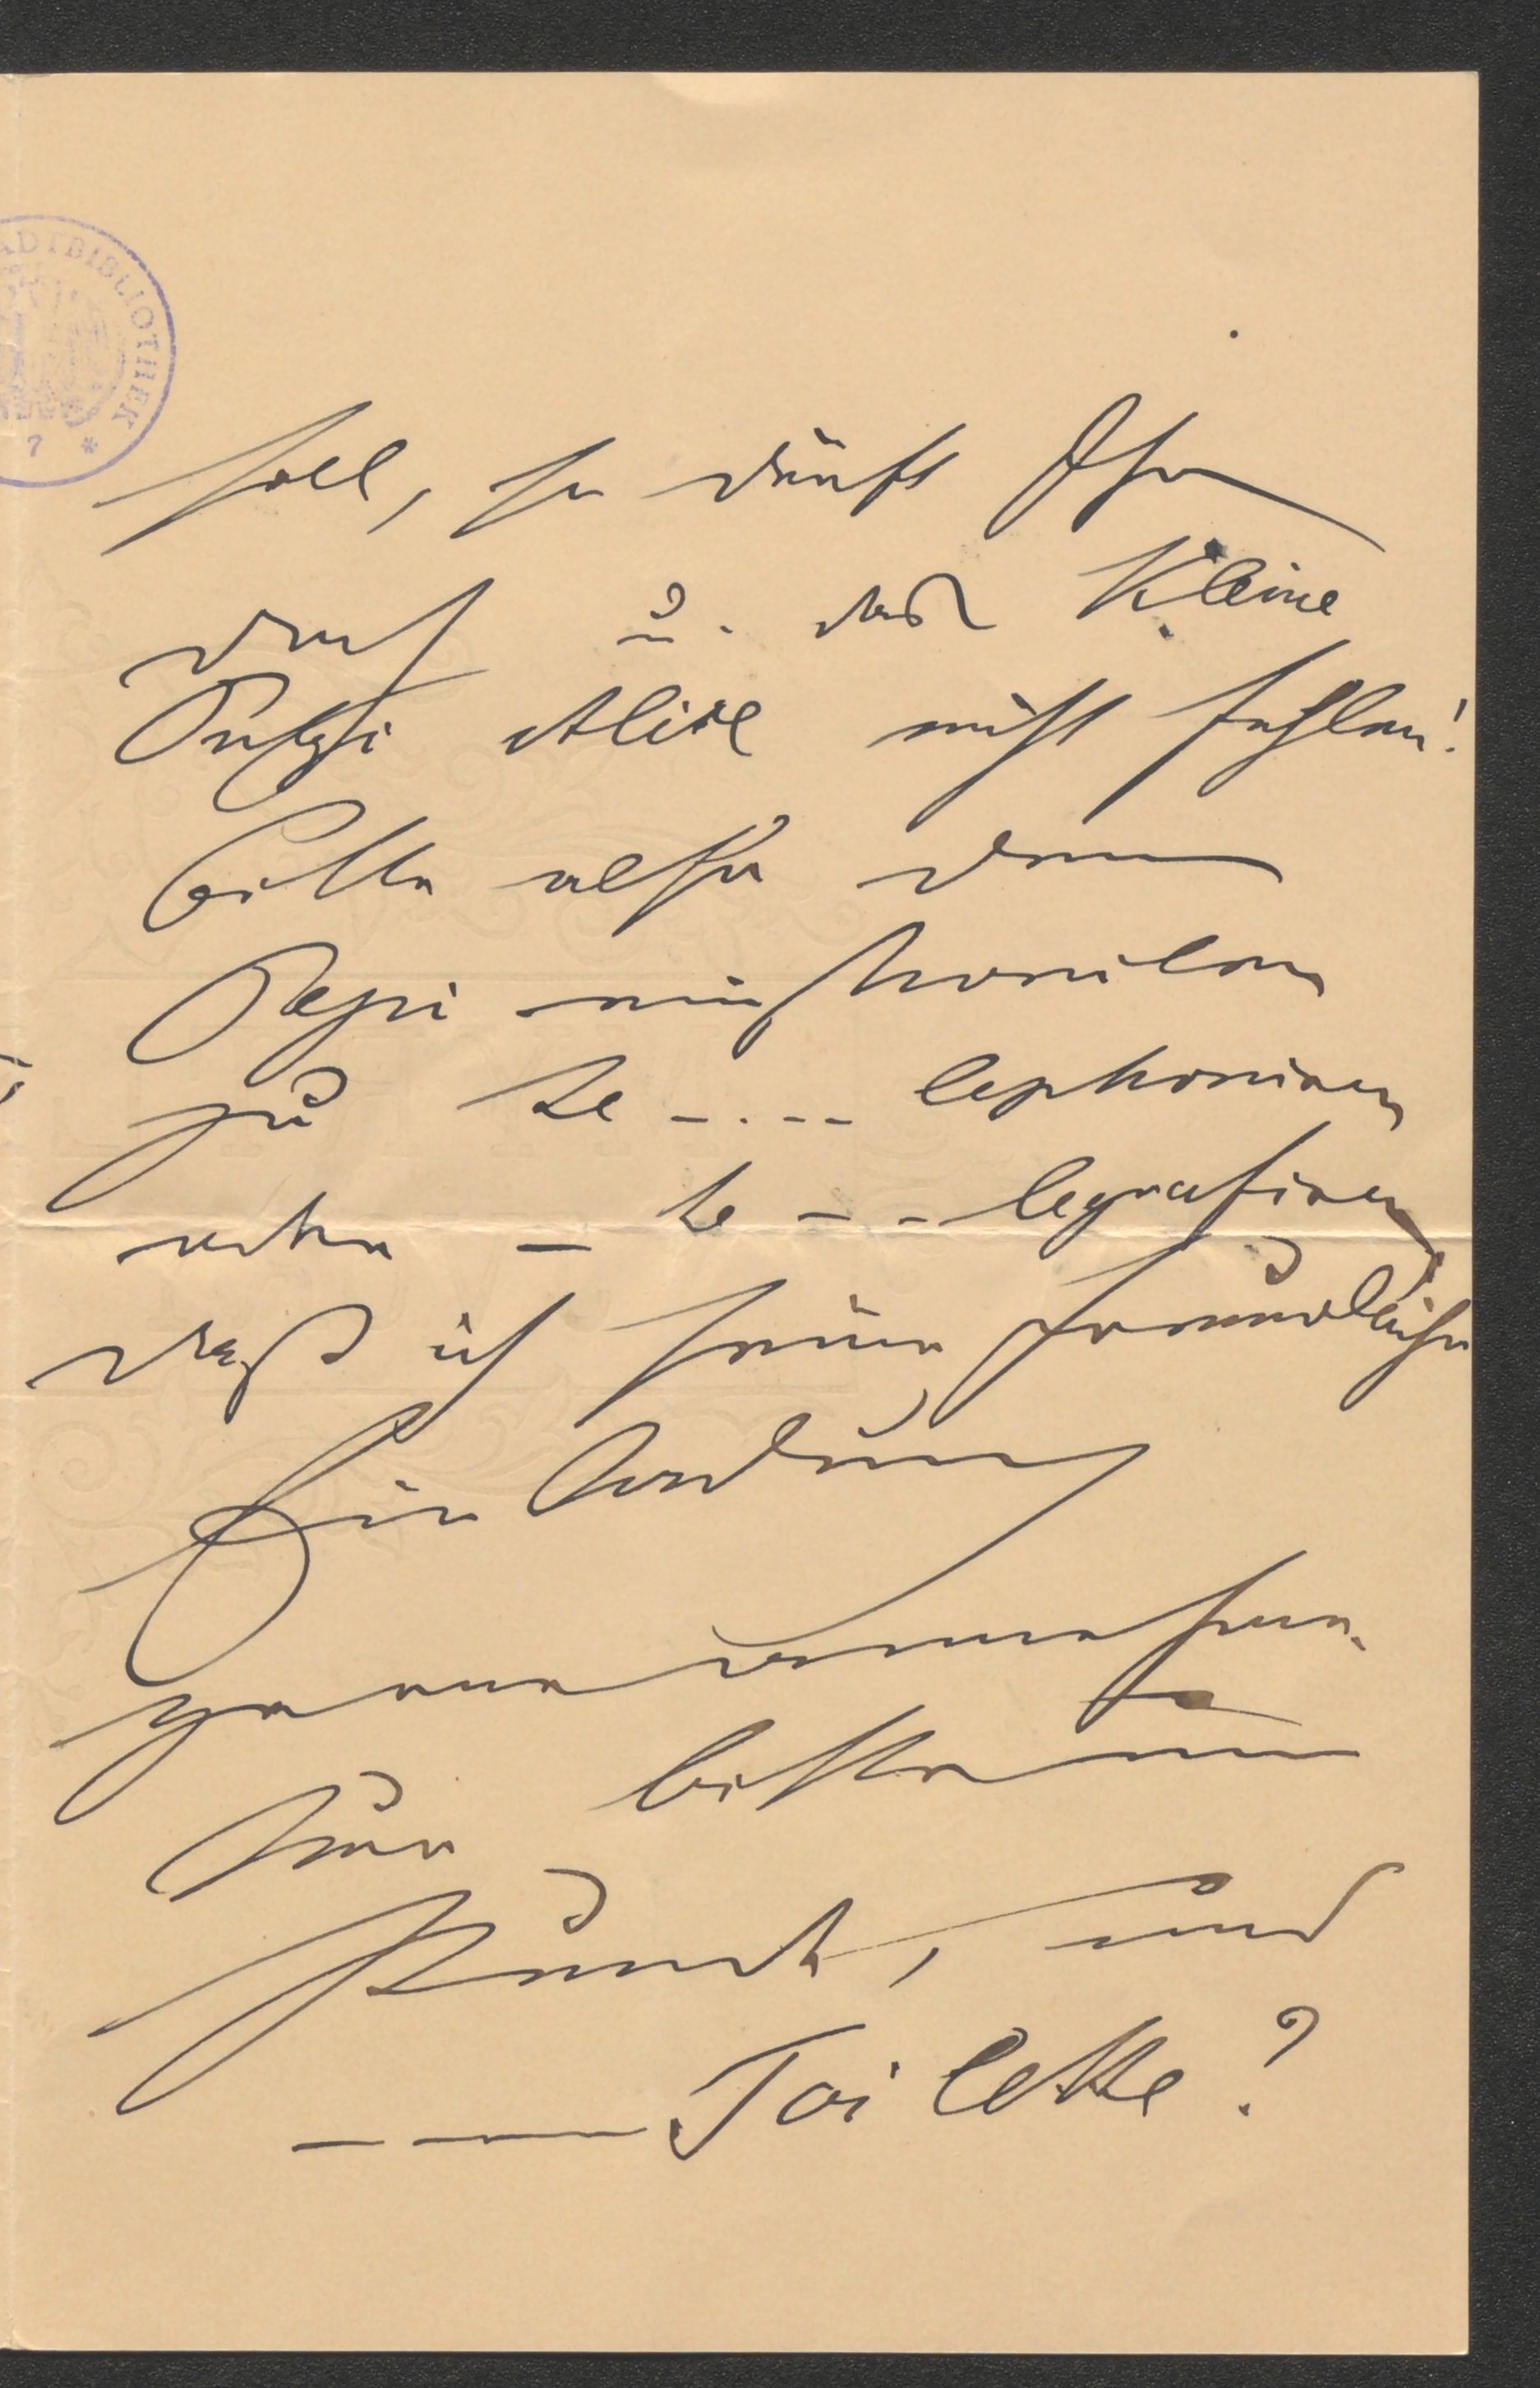 STADTBIBLIOTHEK
7 *
soll, so dürft Ihr
drauf u. das Kleine
Putzi Alice nicht fehlen!
bitte also dem
Papi mitzuteilen
zu te -.-- lephoniren
oder – te -- legrafiren
daß ich seine freundliche
Einladung
gerne annehme.
Nur bitte um
Stunde, und
---- Toilette?